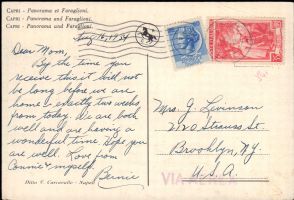 CAPRI - Panorama et Faraglioni.
CAPRI - Panorama and Faraglioni.
CAPRI - Panorama und Faraglioni.
Aug 16, 1954
Dear Mom,
By the time you
receive this it will not
be long before we are
home - exactly two weeks
from today. We are both
well and are having a
wonderful time. Hope you
are well. Love from
Connie & myself.
Bernie
Ditta V. Carcavallo - Napoli
Mrs. G. Levinson
Strauss St.
Brooklyn, N.Y.
U.S.A.
VIA AEREA